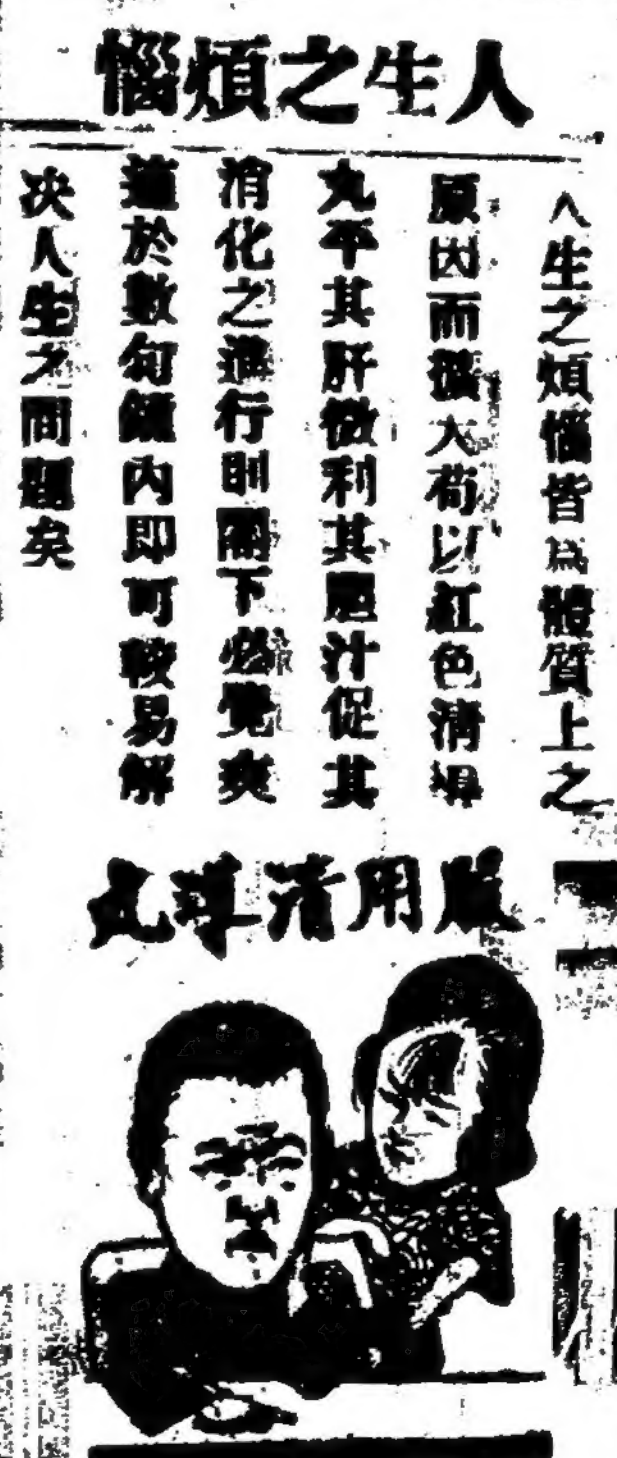 人生之煩惱
人生之煩惱皆爲體質上之
原因而擴大苟以紅色清導
丸平其肝微利其胆汁促其
消化之進行則閣下必覺爽
適於數句鐘內即可較易解
決人生之問題矣
服用清導丸